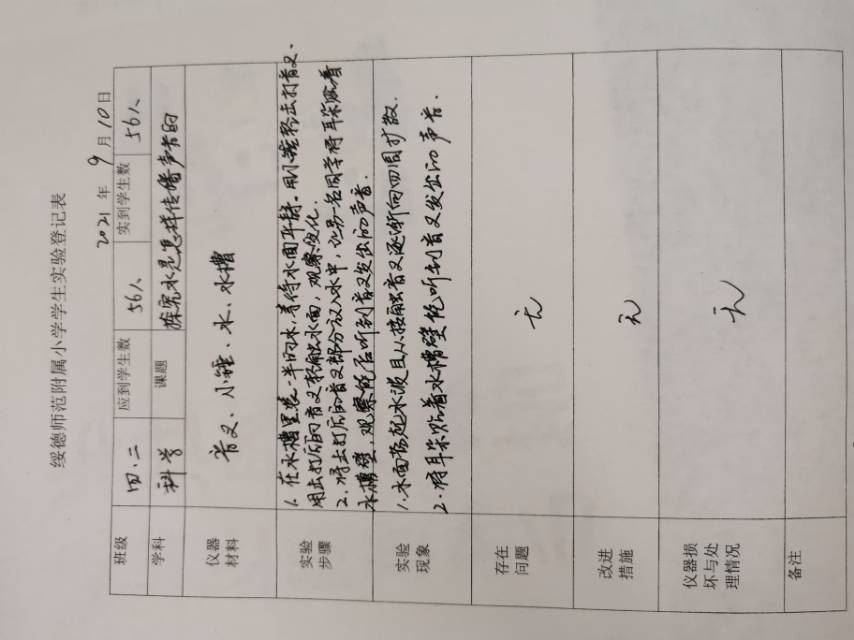 绥德师范附属小学学生实验登记表
2021 年 9 月 10 日
班级 四.二 应到学生数 56人 实到学生数 56人
学科 科学 课题 探究水是怎样传播声音的
仪器材料 音叉、小锤、水、水槽
实验步骤
1. 在水槽里装一半的水,等待水面平静。用小锤轻击打音叉.
用击打后的音叉轻触水面,观察变化.
2. 将击打后的音叉部分放入水中,让另一名同学将耳朵贴着
水槽壁,观察能否听到音叉发出的声音.
实验现象
1. 水面荡起水波且从接触音叉逐渐向四周扩散.
2. 将耳朵贴着水槽壁能听到音叉发出的声音.
存在问题 无
改进措施 无
仪器损坏与处理情况 无
备注